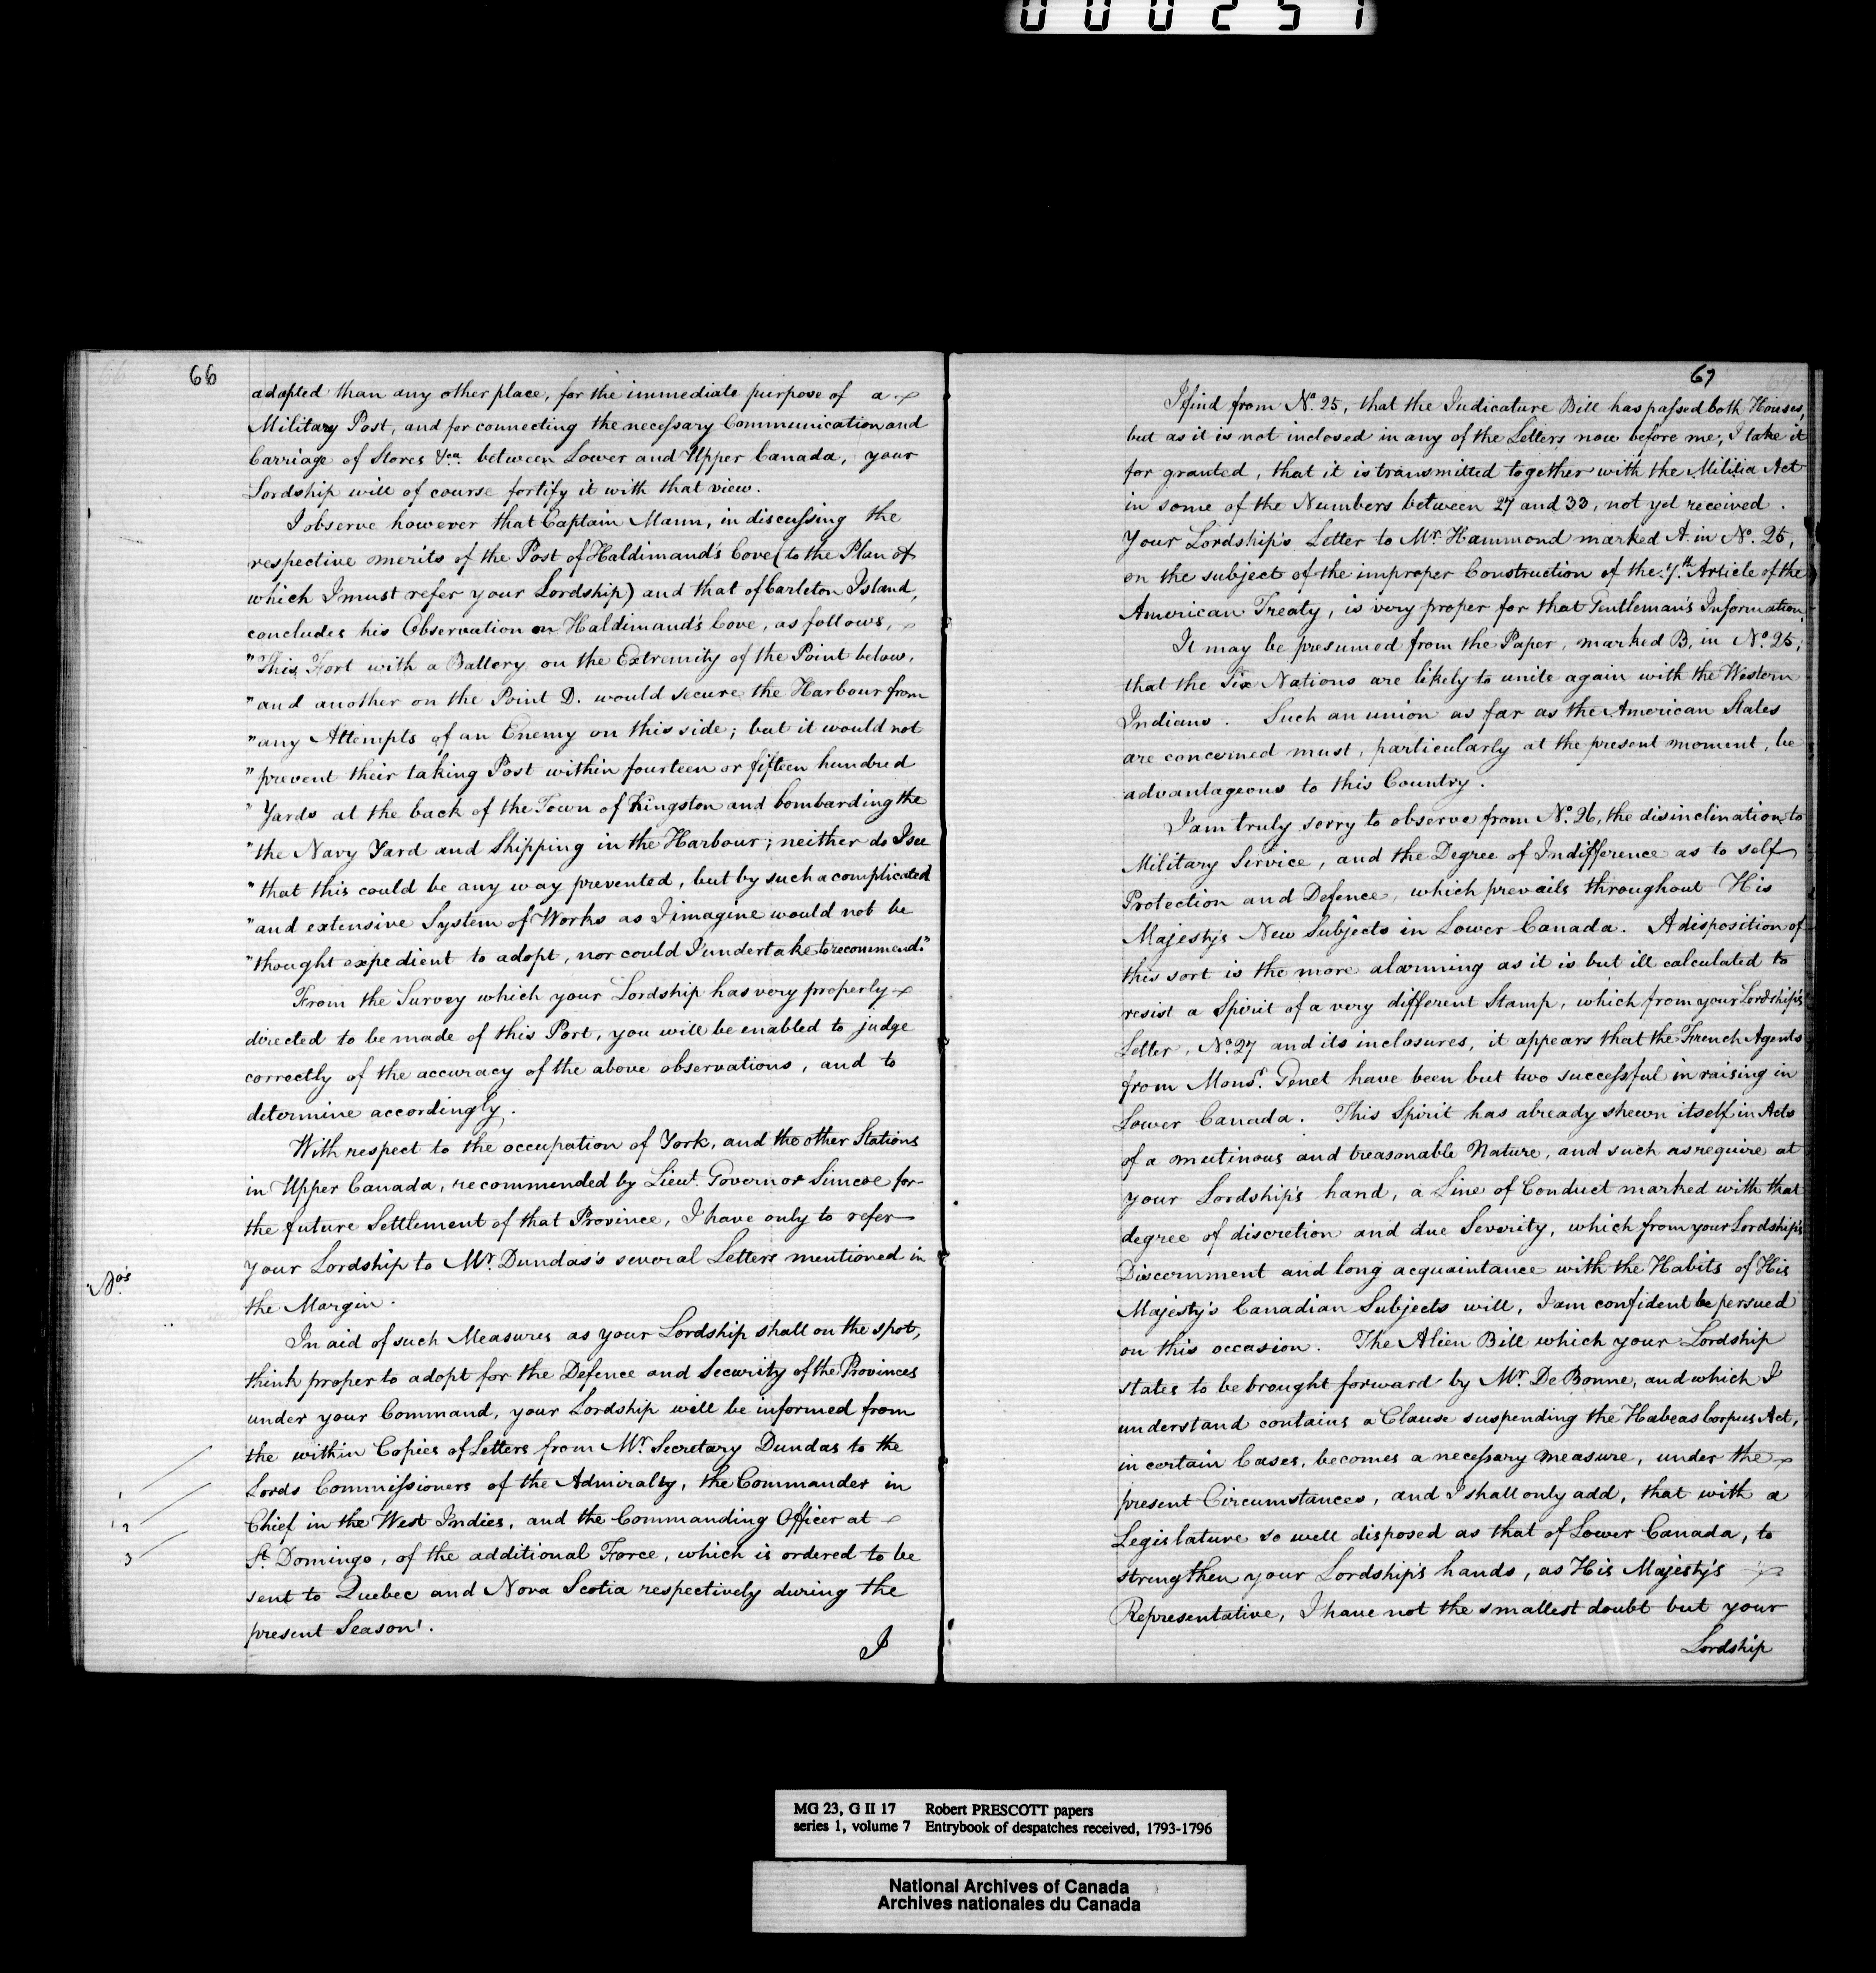 000251
66
adapted than any other place, for the immediate purpose of a
Military Post, and for connecting the necessary Communication and
Carriage of Stores &ca. between Lower and Upper Canada, your
Lordship will of course fortify it with that view.
I observe however that Captain Mann, in discussing the
respective merits of the Post of Haldimand's Cove (to the Plan of
which I must refer your Lordship) and that of Carleton Island,
concludes his Observation on Haldimand's Cove, as follows,
"This Fort with a Battery on the Extremity of the Point below,
"and another on the Point D. would secure the Harbour from
"any Attempts of an Enemy on this side; but it would not
"prevent their taking Post within fourteen or fifteen hundred
"Yards at the back of the Town of Kingston and bombarding the
"the Navy Yard and Shipping in the Harbour; neither do I see
"that this could be any way prevented, but by such a complicated
"and extensive System of Works as I imagine would not be
"thought expedient to adopt, nor could I undertake to recommend."
From the Survey which your Lordship has very properly
directed to be made of this Port, you will be enabled to judge
correctly of the accuracy of the above observations, and to
determine accordingly.
With respect to the occupation of York, and the other Stations
in Upper Canada, recommended by Lieut. Governor Simcoe for
the future Settlement of that Province, I have only to refer
your Lordship to Mr. Dundas's several Letters mentioned in
No's.
the Margin.
In aid of such Measures as your Lordship shall on the spot,
think proper to adopt for the Defence and Security of the Provinces
under your Command, your Lordship will be informed from
the within Copies of Letters from Mr. Secretary Dundas to the
1
Lords Commissioners of the Admiralty, the Commander in
2
Chief in the West Indies, and the Commanding Officer at
3
St. Domingo, of the additional Force, which is ordered to be
sent to Quebec and Nova Scotia respectively during the
present Season.
I
67
I find from No. 25, that the Judicature Bill has passed both Houses,
but as it is not inclosed in any of the Letters now before me, I take it
for granted, that it is transmitted together with the Militia Act
in some of the Numbers between 27 and 33, not yet received.
Your Lordship's Letter to Mr. Hammond marked A. in No. 25,
on the subject of the improper Construction of the 7.th Article of the
American Treaty, is very proper for that Gentleman's Information.
It may be presumed from the Paper, marked B. in No. 25;
that the Six Nations are likely to unite again with the Western
Indians. Such an union as far as the American States
are concerned must, particularly at the present moment, be
advantageous to this Country.
I am truly sorry to observe from No. 26, the disinclination to
Military Service, and the Degree of Indifference as to self
Protection and Defence, which prevails throughout His
Majesty's New Subjects in Lower Canada. A disposition of
this sort is the more alarming as it is but ill calculated to
resist a Spirit of a very different Stamp, which from your Lordship's
Letter, No. 27 and its inclosures, it appears that the French Agents
from Monsr. Genet have been but two successful in raising in
Lower Canada. This Spirit has already shewn itself in Acts
of a mutinous and treasonable Nature, and such as require at
your Lordship's hand, a Line of Conduct marked with that
degree of discretion and due Severity, which from your Lordship's
Discernment and long acquaintance with the Habits of His
Majesty's Canadian Subjects will, I am confident be persued
on this occasion. The Alien Bill which your Lordship
states to be brought forward by Mr. De Bonne, and which I
understand contains a Clause suspending the Habeas Corpus Act,
in certain Cases, becomes a necessary measure, under the
present Circumstances, and I shall only add, that with a
Legislature so well disposed as that of Lower Canada, to
strengthen your Lordship's hands, as His Majesty's
Representative, I have not the smallest doubt but your
Lordship
MG 23, G II 17 Robert PRESCOTT papers
series 1, volume 7 Entrybook of despatches received, 1793-1796
National Archives of Canada
Archives nationales du Canada